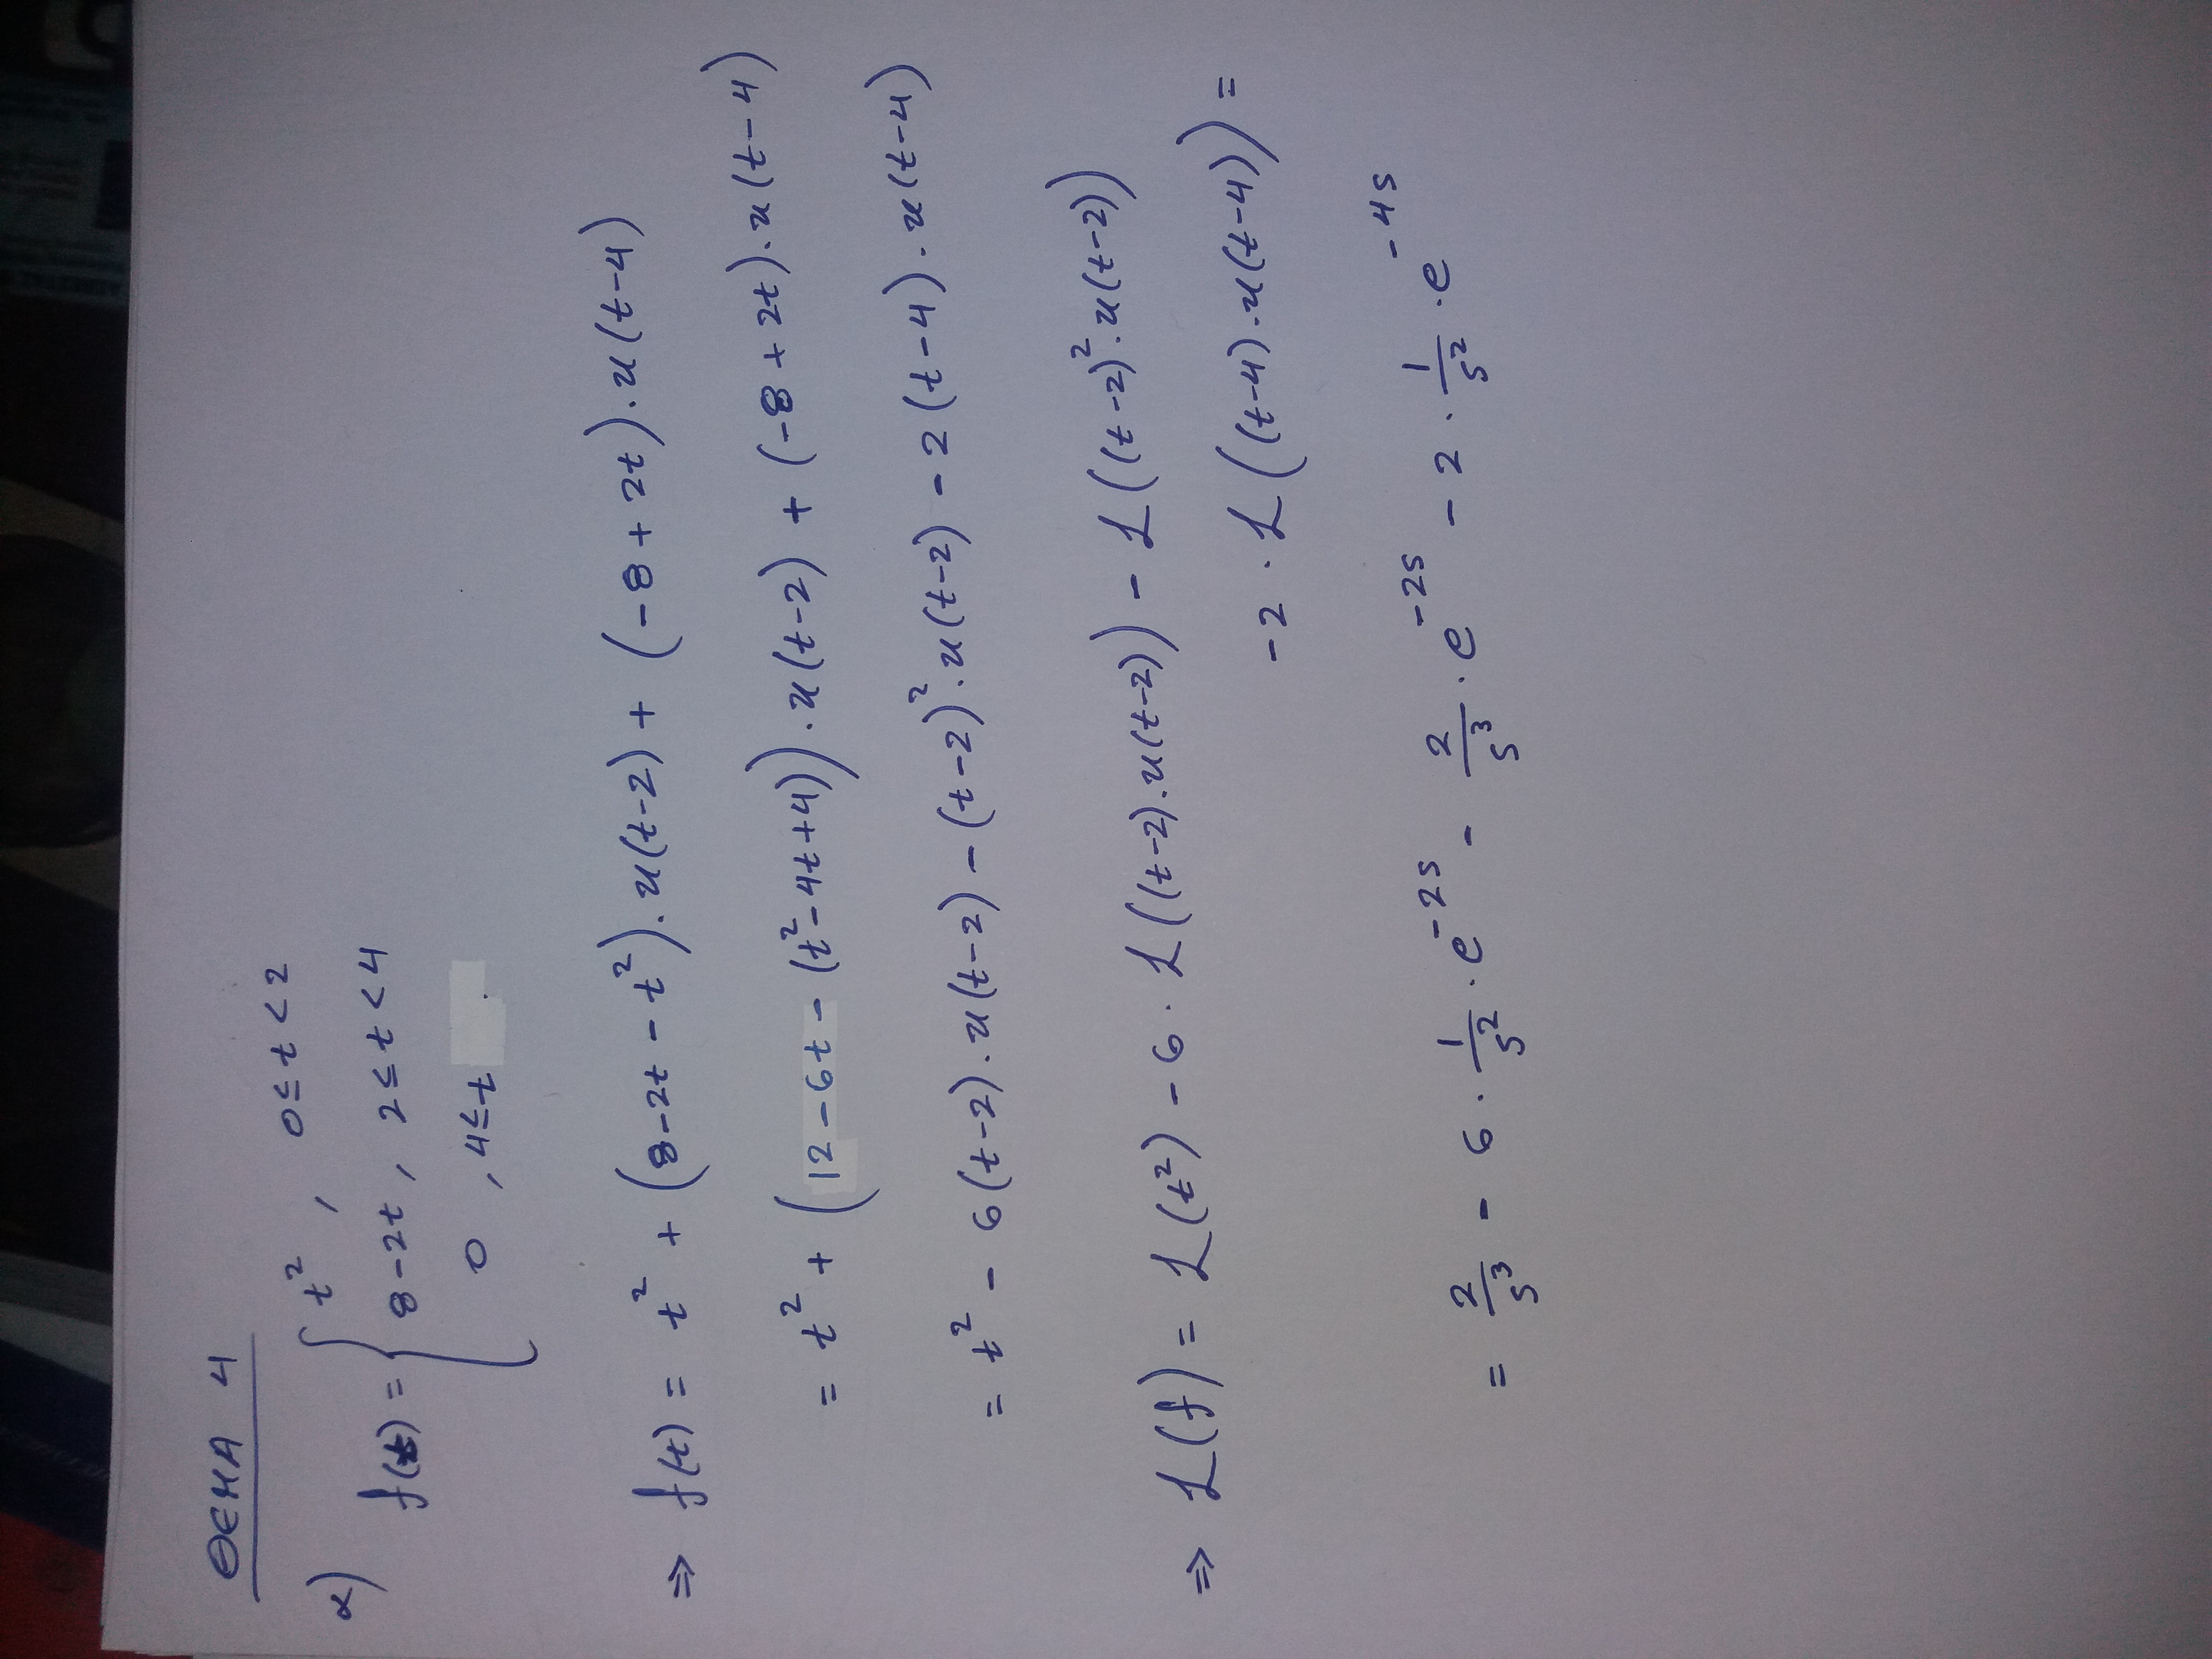 ΘΕΜΑ 4
α) f(t) = { t², 0≤t<2
8-2t, 2≤t<4
0, 4≤t
⇒ f(t) = t² + (8-2t-t²)·u(t-2) + (-8+2t)·u(t-4)
= t² + (12-6t-(t²-4t+4))·u(t-2) + (-8+2t)·u(t-4)
= t² - 6(t-2)·u(t-2) - (t-2)²·u(t-2) - 2(t-4)·u(t-4)
⇒ L(f) = L(t²) - 6·L((t-2)·u(t-2)) - L((t-2)²·u(t-2))
-2·L((t-4)·u(t-4)) =
= 2/s³ - 6·1/s²·e^-2s - 2/s³·e^-2s - 2·1/s²·e^-4s